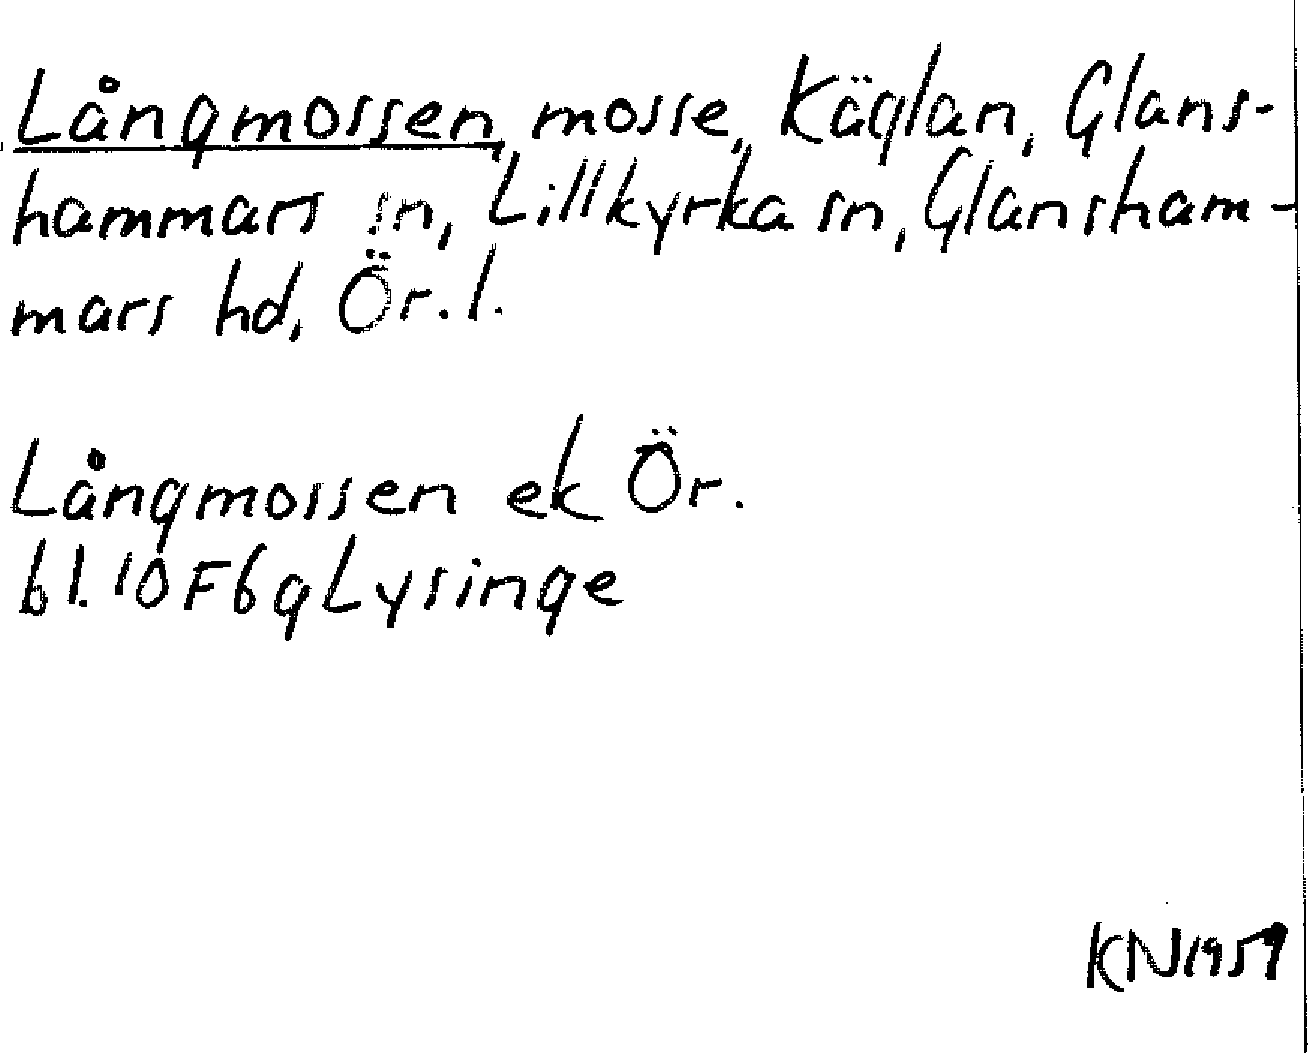 Långmossen, mosse, Käglan, Glans-
hammars sn, Lillkyrka sn, Glansham-
mars hd, Ör. l.
Långmossen ek Ör.
bl. 10F6g Lysinge
KN 1959